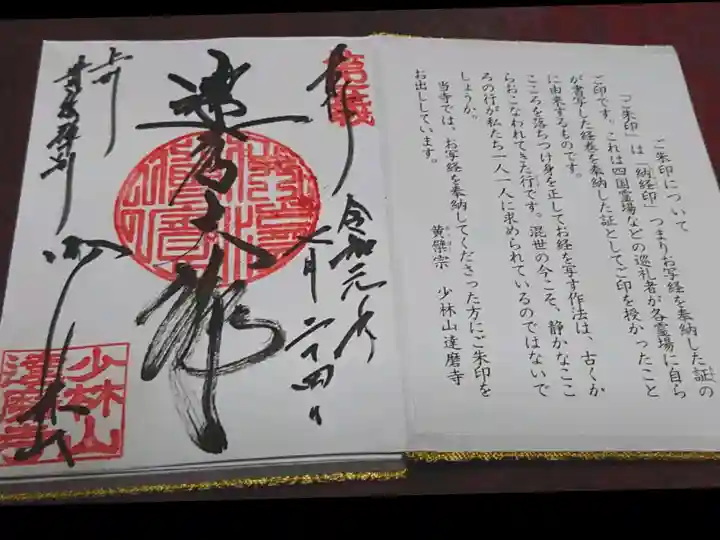 ご朱印について
「ご朱印」は「納経印」つまりお写経を奉納した証の
ご印です。これは四国霊場などの巡礼者が各霊場に自ら
が書写した経巻を奉納した証としてご印を授かったこと
に由来するものです。
こころを落ちつけ身を正してお経を写す作法は、古くか
らおこなわれてきた行です。混世の今こそ、静かなここ
ろの行が私たち一人一人に求められているのではないで
しょうか。
当寺では、お写経を奉納してくださった方にご朱印を
お出ししています。
黄檗宗　少林山達磨寺
奉拝
令和元年
七月二十四日
達磨大師
上州
少林山
少林山
達磨寺